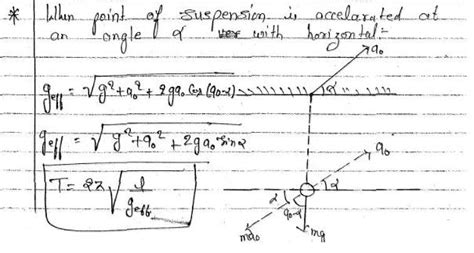 * When point of suspension is accelarated at
an angle α with horizontal:-
a₀
g_eff = √(g²+a₀²+2ga₀ cos(90-α))
α
g_eff = √(g²+a₀²+2ga₀ sinα)
a₀
T = 2π √(l/g_eff)
α
α
90-α
ma₀
mg